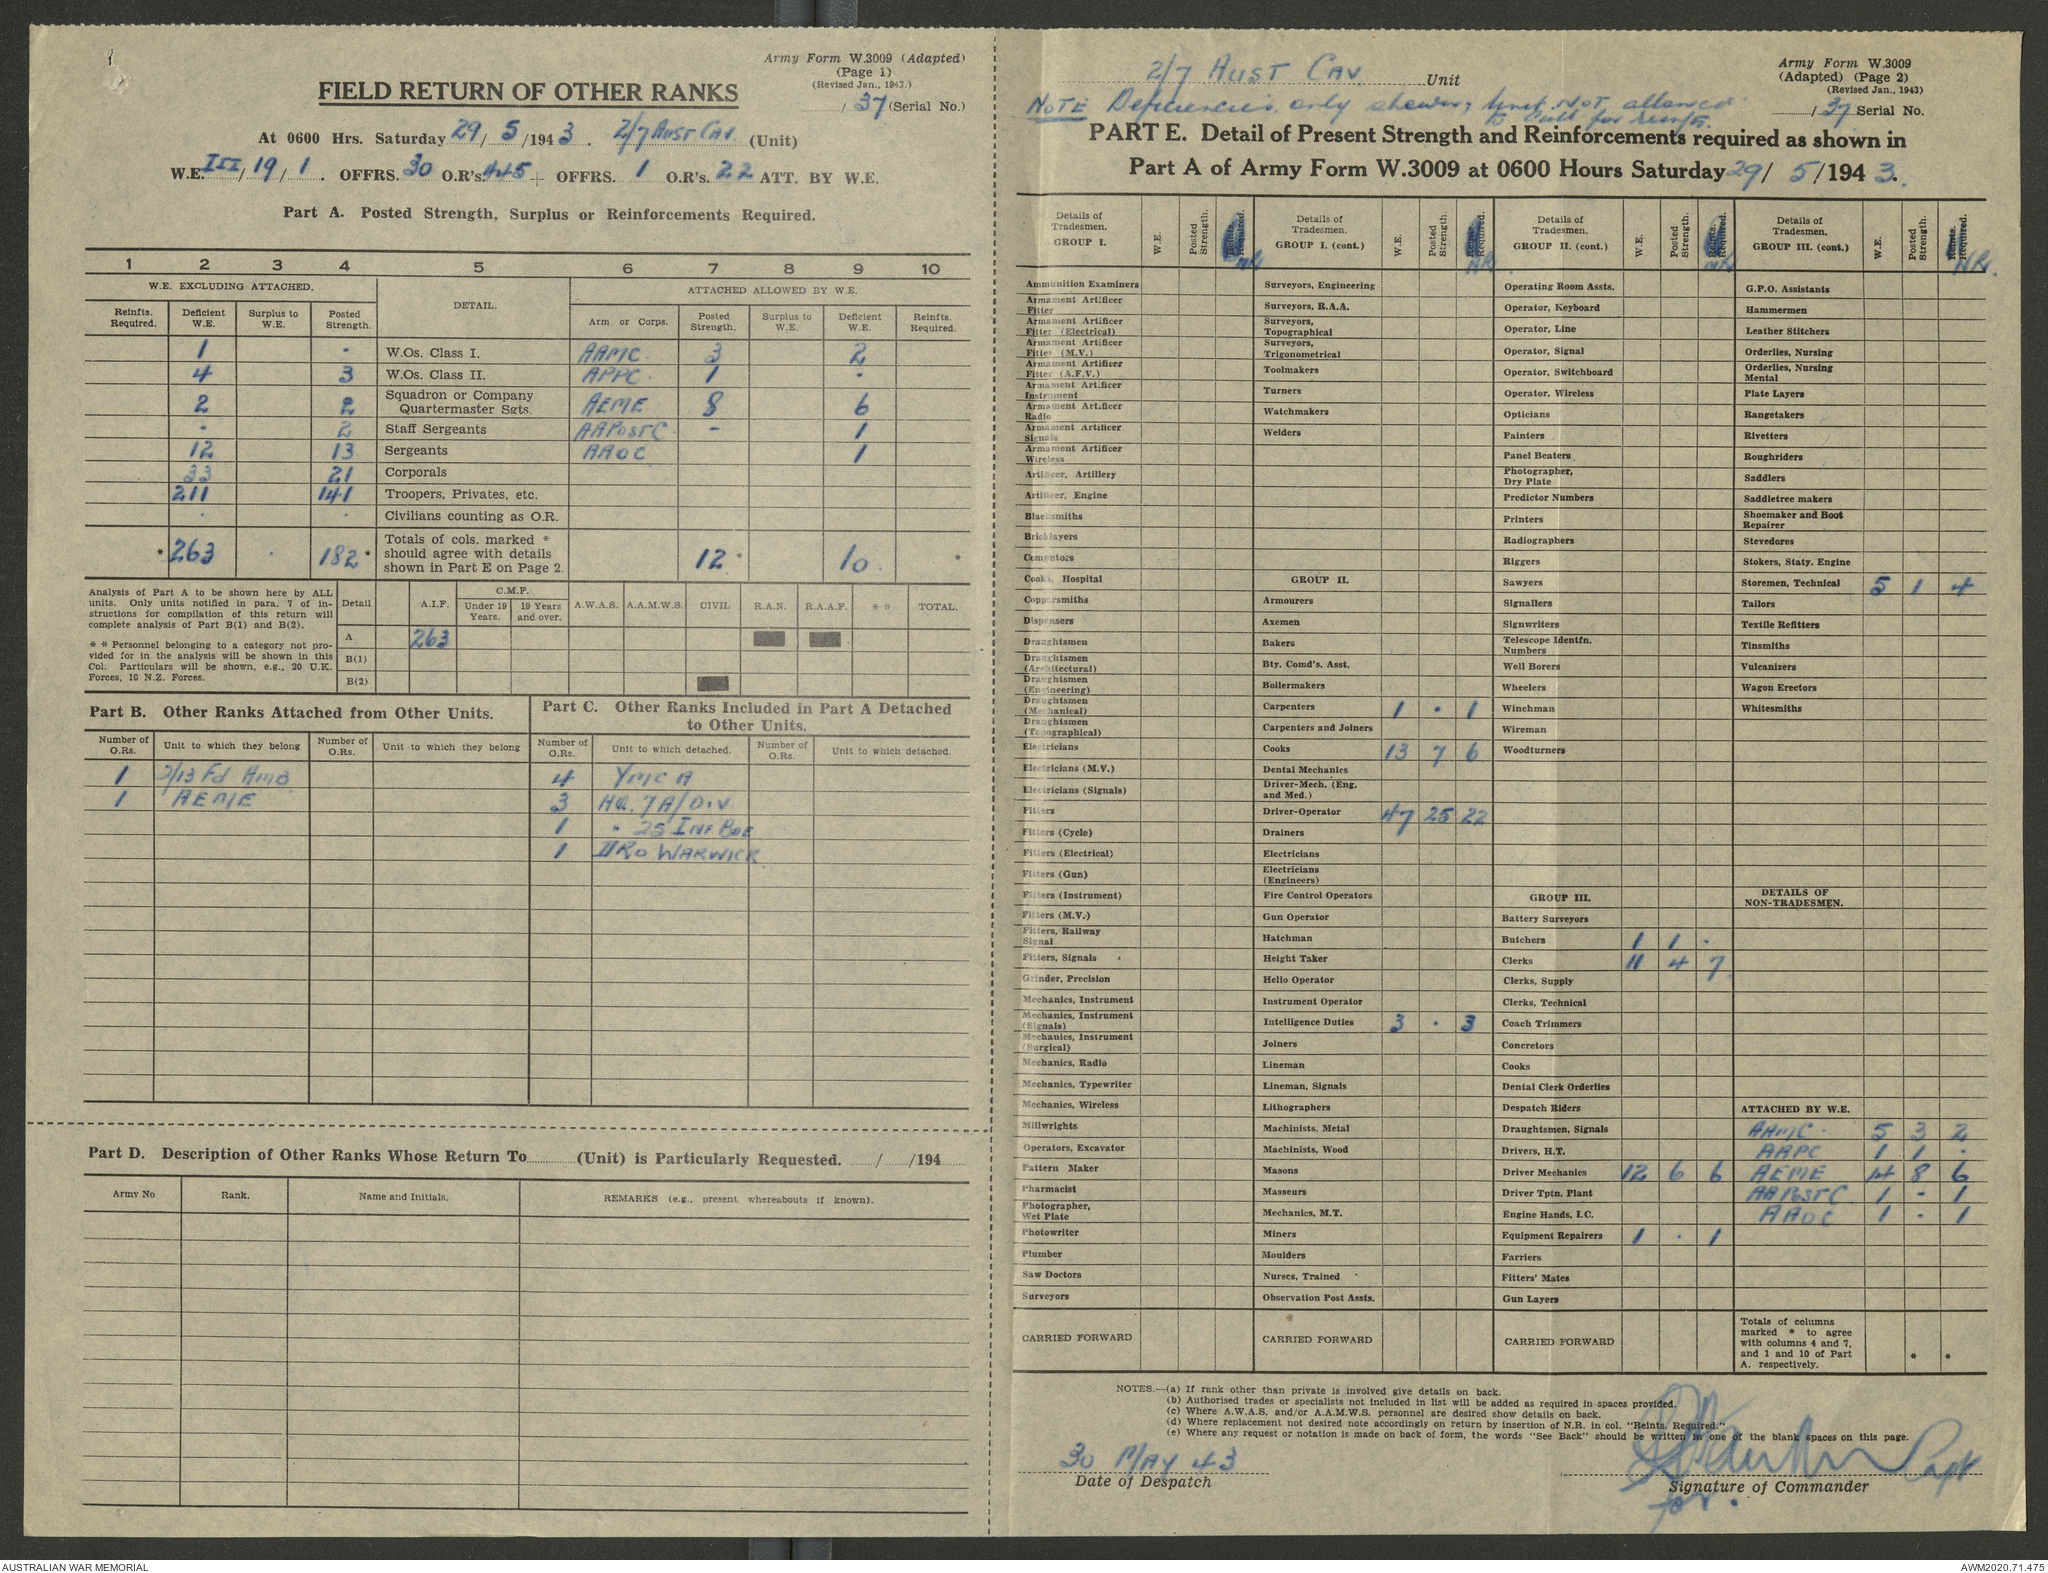 Army Form W.3009 (Adapted)
(Page 1)
(Revised Jan., 1943.)
FIELD RETURN OF OTHER RANKS
/ 37 (Serial No.)
At 0600 Hrs. Saturday 29/ 5 /194 3. 2/7 Aust Cav. (Unit)
W.E. III/19/1. OFFRS. 30 O.R's. 445 + OFFRS. 1 O.R's. 22 ATT. BY W.E.
Part A. Posted Strength, Surplus or Reinforcements Required.
1 2 3 4 5 6 7 8 9 10
W.E. EXCLUDING ATTACHED. DETAIL. ATTACHED ALLOWED BY W.E.
Reinfts. Required. Deficient W.E. Surplus to W.E. Posted Strength. Arm or Corps. Posted Strength. Surplus to W.E. Deficient W.E. Reinfts. Required.
1 . W.Os. Class I. AAMC 3 2
4 3 W.Os. Class II. APPC 1 .
2 2 Squadron or Company Quartermaster Sgts. AEME 8 6
. 2 Staff Sergeants AAPostC - 1
12 13 Sergeants AAOC 1
33 21 Corporals
211 141 Troopers, Privates, etc.
. . Civilians counting as O.R.
* 263 . 182 * Totals of cols. marked * should agree with details shown in Part E on Page 2. 12 * 10 . *
Analysis of Part A to be shown here by ALL units. Only units notified in para. 7 of instructions for compilation of this return will complete analysis of Part B(1) and B(2).
* * Personnel belonging to a category not provided for in the analysis will be shown in this Col. Particulars will be shown, e.g., 20 U.K. Forces, 10 N.Z. Forces.
Detail A.I.F. C.M.F. Under 19 Years. 19 Years and over. A.W.A.S. A.A.M.W.S. CIVIL R.A.N. R.A.A.F. * * TOTAL.
A 263
B(1)
B(2)
Part B. Other Ranks Attached from Other Units.
Number of O.Rs. Unit to which they belong Number of O.Rs. Unit to which they belong
1 2/13 Fd Amb
1 AEME
Part C. Other Ranks Included in Part A Detached to Other Units.
Number of O.Rs. Unit to which detached. Number of O.Rs. Unit to which detached.
4 YMCA
3 HQ. 7 A/Div
1 " 25 Inf Bde
1 DRO WARWICK
Part D. Description of Other Ranks Whose Return To (Unit) is Particularly Requested. / /194
Army No Rank. Name and Initials. REMARKS (e.g., present whereabouts if known).
2/7 Aust Cav. Unit
Army Form W.3009
(Adapted) (Page 2)
(Revised Jan., 1943)
/ 37 Serial No.
NOTE Deficiencies only shown; Unit NOT allowed
to call for reinfts.
PART E. Detail of Present Strength and Reinforcements required as shown in
Part A of Army Form W.3009 at 0600 Hours Saturday 29/ 5/194 3.
Details of Tradesmen. GROUP I. W.E. Posted Strength. Reinfts. Required. NR
Ammunition Examiners
Armament Artificer Fitter
Armament Artificer Fitter (Electrical)
Armament Artificer Fitter (M.V.)
Armament Artificer Fitter (A.F.V.)
Armament Artificer Instrument
Armament Artificer Radio
Armament Artificer Signals
Armament Artificer Wireless
Artificer, Artillery
Artificer, Engine
Blacksmiths
Bricklayers
Computors
Cooks, Hospital
Coppersmiths
Dispensers
Draughtsmen
Draughtsmen (Architectural)
Draughtsmen (Engineering)
Draughtsmen (Mechanical)
Draughtsmen (Topographical)
Electricians
Electricians (M.V.)
Electricians (Signals)
Fitters
Fitters (Cycle)
Fitters (Electrical)
Fitters (Gun)
Fitters (Instrument)
Fitters (M.V.)
Fitters, Railway Signal
Fitters, Signals
Grinder, Precision
Mechanics, Instrument
Mechanics, Instrument (Signals)
Mechanics, Instrument (Surgical)
Mechanics, Radio
Mechanics, Typewriter
Mechanics, Wireless
Millwrights
Operators, Excavator
Pattern Maker
Pharmacist
Photographer, Wet Plate
Photowriter
Plumber
Saw Doctors
Surveyors
CARRIED FORWARD
Details of Tradesmen. GROUP I. (cont.) W.E. Posted Strength. Reinfts. Required. NR.
Surveyors, Engineering
Surveyors, R.A.A.
Surveyors, Topographical
Surveyors, Trigonometrical
Toolmakers
Turners
Watchmakers
Welders
GROUP II.
Armourers
Axemen
Bakers
Bty. Comd's. Asst.
Boilermakers
Carpenters 1 . 1
Carpenters and Joiners
Cooks 13 7 6
Dental Mechanics
Driver-Mech. (Eng. and Med.)
Driver-Operator 47 25 22
Drainers
Electricians
Electricians (Engineers)
Fire Control Operators
Gun Operator
Hatchman
Height Taker
Hello Operator
Instrument Operator
Intelligence Duties 3 . 3
Joiners
Lineman
Lineman, Signals
Lithographers
Machinists, Metal
Machinists, Wood
Masons
Masseurs
Mechanics, M.T.
Miners
Moulders
Nurses, Trained
Observation Post Assts.
CARRIED FORWARD
Details of Tradesmen. GROUP II. (cont.) W.E. Posted Strength. Reinfts. Required. NR
Operating Room Assts.
Operator, Keyboard
Operator, Line
Operator, Signal
Operator, Switchboard
Operator, Wireless
Opticians
Painters
Panel Beaters
Photographer, Dry Plate
Predictor Numbers
Printers
Radiographers
Riggers
Sawyers
Signallers
Signwriters
Telescope Identfn. Numbers
Well Borers
Wheelers
Winchman
Wireman
Woodturners
GROUP III.
Battery Surveyors
Butchers 1 1 .
Clerks 11 4 7
Clerks, Supply
Clerks, Technical
Coach Trimmers
Concretors
Cooks
Dental Clerk Orderlies
Despatch Riders
Draughtsmen, Signals
Drivers, H.T.
Driver Mechanics 12 6 6
Driver Tptn. Plant
Engine Hands, I.C.
Equipment Repairers 1 . 1
Farriers
Fitters' Mates
Gun Layers
CARRIED FORWARD
Details of Tradesmen. GROUP III. (cont.) W.E. Posted Strength. Reinfts. Required. NR.
G.P.O. Assistants
Hammermen
Leather Stitchers
Orderlies, Nursing
Orderlies, Nursing Mental
Plate Layers
Rangetakers
Rivetters
Roughriders
Saddlers
Saddletree makers
Shoemaker and Boot Repairer
Stevedores
Stokers, Staty. Engine
Storemen, Technical 5 1 4
Tailors
Textile Refitters
Tinsmiths
Vulcanizers
Wagon Erectors
Whitesmiths
DETAILS OF NON-TRADESMEN.
ATTACHED BY W.E.
AAMC. 5 3 2
AAPC 1 1 .
AEME 14 8 6
AAPostC 1 - 1
AAOC 1 - 1
Totals of columns marked * to agree with columns 4 and 7, and 1 and 10 of Part A. respectively. * *
NOTES.—(a) If rank other than private is involved give details on back.
(b) Authorised trades or specialists not included in list will be added as required in spaces provided.
(c) Where A.W.A.S. and/or A.A.M.W.S. personnel are desired show details on back.
(d) Where replacement not desired note accordingly on return by insertion of N.R. in col. "Reints. Required."
(e) Where any request or notation is made on back of form, the words "See Back" should be written in one of the blank spaces on this page.
30 MAY 43
Date of Despatch
Capt
Signature of Commander
for.
AUSTRALIAN WAR MEMORIAL
AWM2020.71.475